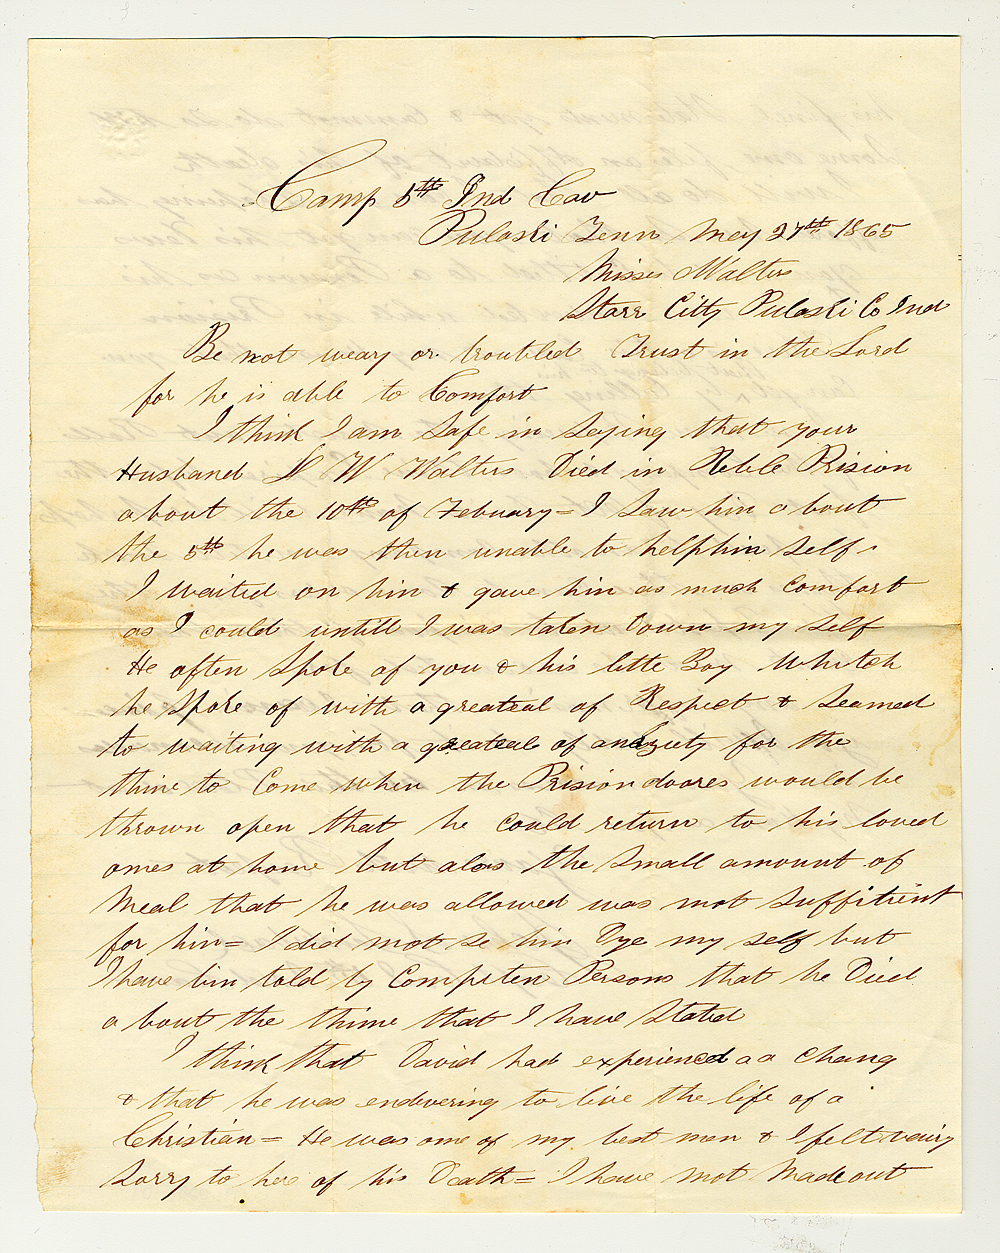 Camp 5th Ind Cav
Pulaski Tenn May 27th 1865
Misses Walters
Starr Citty Pulaski Co Ind
Be not weary or troubled Trust in the Lord
for he is able to Comfort
I think I am Safe in Saying that your
Husband D W Walters Died in Reble Prision
about the 10th of Febuary = I Saw him about
the 5th he was then unable to help him self.
I waited on him & gave him as much Comfort
as I could untill I was taken Down my self
He often Spoke of you & his little Boy Whitch
he Spoke of with a greateal of Respect & Seamed
to waiting with a greateal of anxiety for the
thime to Come when the Prision doores would be
thrown open that he could return to his loved
ones at home but alas the Small amount of
Meal that he was allowed was not Suffitient
for him = I did not Se him Dye my self but
I have bin told by Compiten Persons that he Died
a bout the thime that I have Stated
I think that David had experienced a a Chang
& that he was endevering to live the life of a
Christian = He was one of my best men & I felt vairy
Sorry to here of his Death = I have not Made out